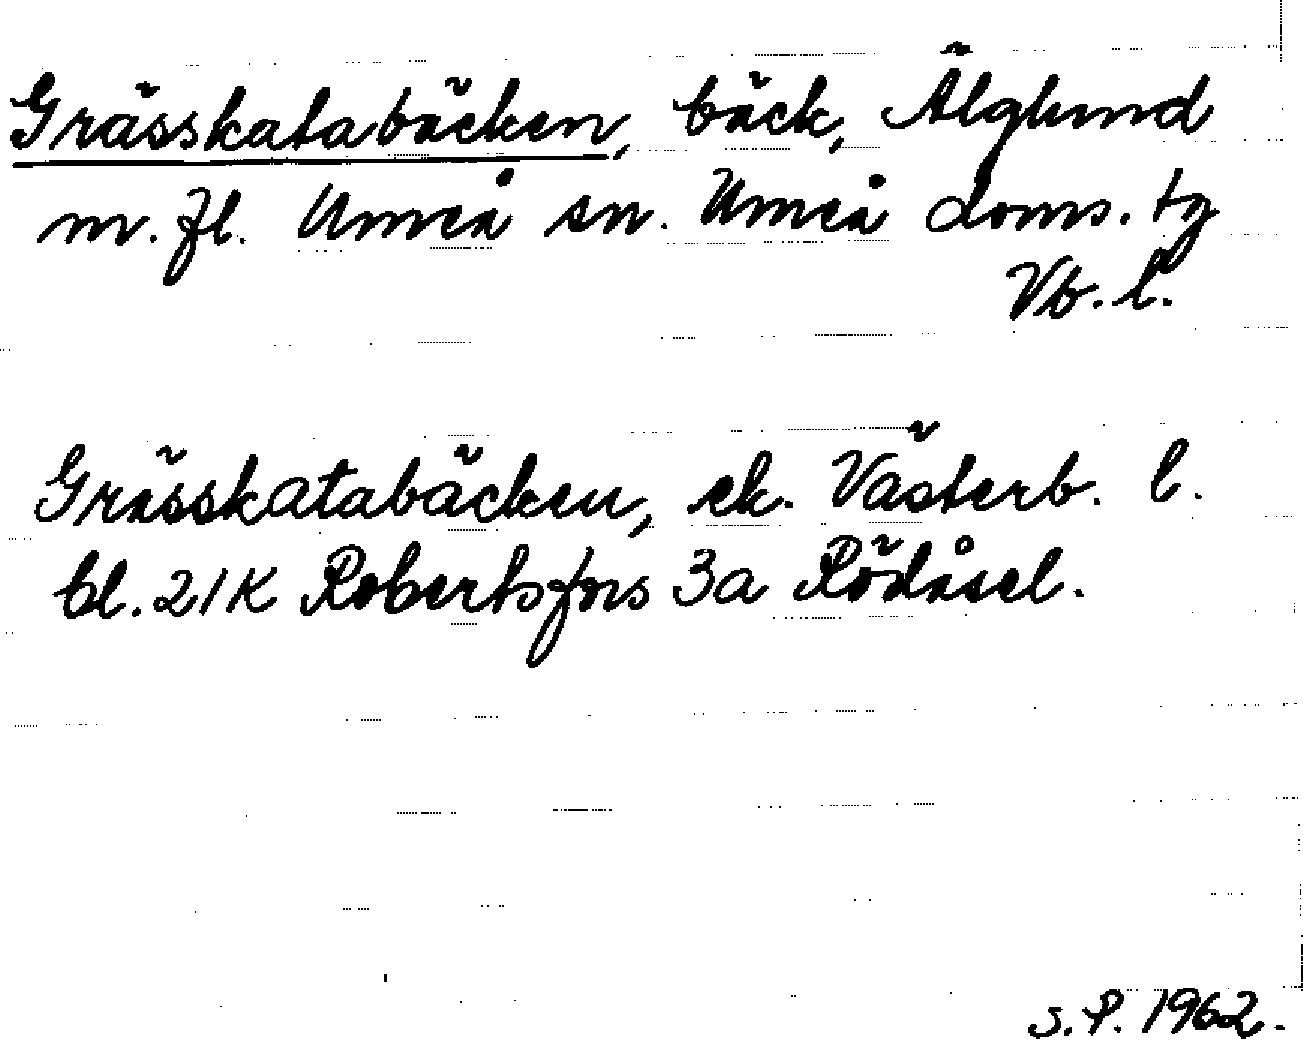 Grässkatabäcken, bäck, Älglund
m. fl. Umeå sn. Umeå doms. tg
Vb. l.
Grässkatabäcken, ek. Västerb. l.
bl. 21K Robertsfors 3a Rödåsel.
S.P. 1962.